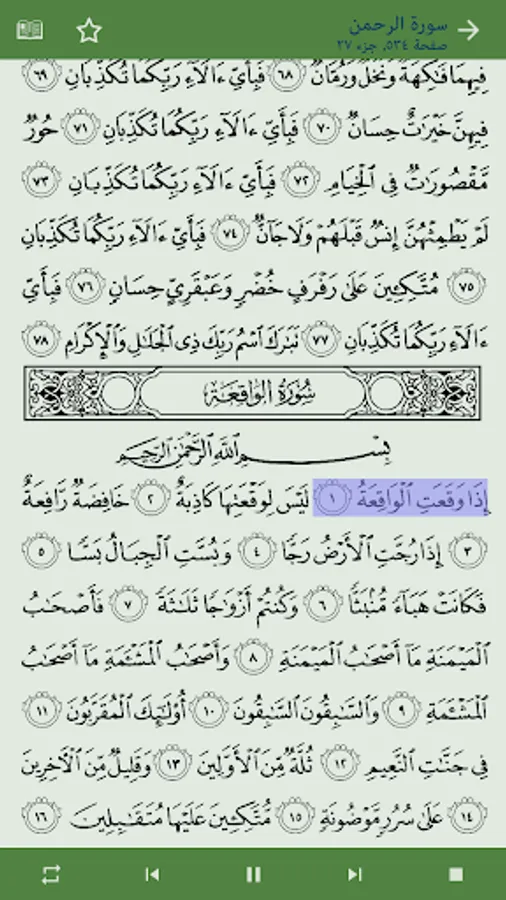 سورة الرحمن
صفحة ٥٣٤, جزء ٢٧
فِيهِمَا فَٰكِهَةٌ وَنَخْلٌ وَرُمَّانٌ ٦٨ فَبِأَيِّ ءَالَآءِ رَبِّكُمَا تُكَذِّبَانِ ٦٩
فِيهِنَّ خَيْرَٰتٌ حِسَانٌ ٧٠ فَبِأَيِّ ءَالَآءِ رَبِّكُمَا تُكَذِّبَانِ ٧١ حُورٌ
مَّقْصُورَٰتٌ فِى ٱلْخِيَامِ ٧٢ فَبِأَيِّ ءَالَآءِ رَبِّكُمَا تُكَذِّبَانِ ٧٣
لَمْ يَطْمِثْهُنَّ إِنسٌ قَبْلَهُمْ وَلَا جَآنٌّ ٧٤ فَبِأَيِّ ءَالَآءِ رَبِّكُمَا تُكَذِّبَانِ
٧٥ مُتَّكِـِٔينَ عَلَىٰ رَفْرَفٍ خُضْرٍ وَعَبْقَرِىٍّ حِسَانٍ ٧٦ فَبِأَيِّ
ءَالَآءِ رَبِّكُمَا تُكَذِّبَانِ ٧٧ تَبَٰرَكَ ٱسْمُ رَبِّكَ ذِى ٱلْجَلَٰلِ وَٱلْإِكْرَامِ ٧٨
سُورَةُ الوَاقِعَةِ
بِسْمِ ٱللَّهِ ٱلرَّحْمَٰنِ ٱلرَّحِيمِ
إِذَا وَقَعَتِ ٱلْوَاقِعَةُ ١ لَيْسَ لِوَقْعَتِهَا كَاذِبَةٌ ٢ خَافِضَةٌ رَّافِعَةٌ
٣ إِذَا رُجَّتِ ٱلْأَرْضُ رَجًّا ٤ وَبُسَّتِ ٱلْجِبَالُ بَسًّا ٥
فَكَانَتْ هَبَآءً مُّنۢبَثًّا ٦ وَكُنتُمْ أَزْوَٰجًا ثَلَٰثَةً ٧ فَأَصْحَٰبُ
ٱلْمَيْمَنَةِ مَآ أَصْحَٰبُ ٱلْمَيْمَنَةِ ٨ وَأَصْحَٰبُ ٱلْمَشْـَٔمَةِ مَآ أَصْحَٰبُ
ٱلْمَشْـَٔمَةِ ٩ وَٱلسَّٰبِقُونَ ٱلسَّٰبِقُونَ ١٠ أُو۟لَٰٓئِكَ ٱلْمُقَرَّبُونَ ١١
فِى جَنَّٰتِ ٱلنَّعِيمِ ١٢ ثُلَّةٌ مِّنَ ٱلْأَوَّلِينَ ١٣ وَقَلِيلٌ مِّنَ ٱلْـَٔاخِرِينَ
١٤ عَلَىٰ سُرُرٍ مَّوْضُونَةٍ ١٥ مُّتَّكِـِٔينَ عَلَيْهَا مُتَقَٰبِلِينَ ١٦